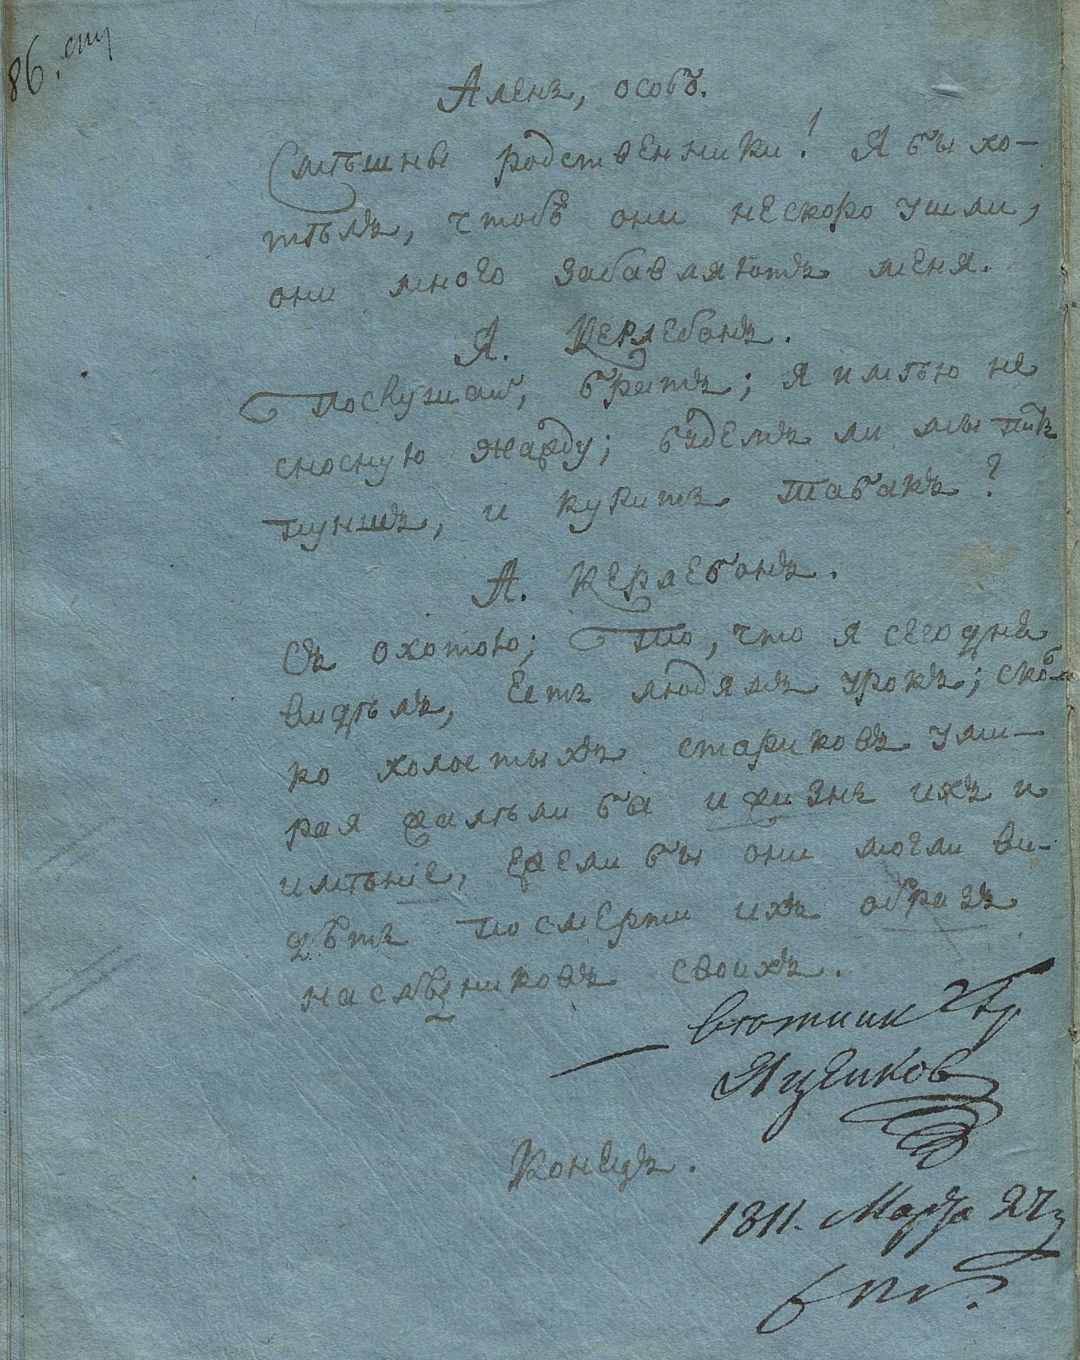 86. стр
Аленъ, особъ.
Смѣшны родственники! Я бы хо-
тѣлъ, чтобъ они нескоро ушли,
они много забавляютъ меня.
Я. Керлебонъ.
Послушай, братъ; я имѣю не
сносную жажду; будемъ ли мы пить
пуншъ, и курить табакъ?
А. Керлебонъ.
Съ охотою; То, что я сегодня
видѣлъ, есть людямъ урокъ; сколь-
ко холостыхъ стариковъ уми-
рая жалѣли ба и жизнь ихъ и
имѣніе, если бы они могли ви-
дѣть посмерти ихъ образъ
наслѣдниковъ своихъ.
Яценков
Конецъ.
1811. Марта 27